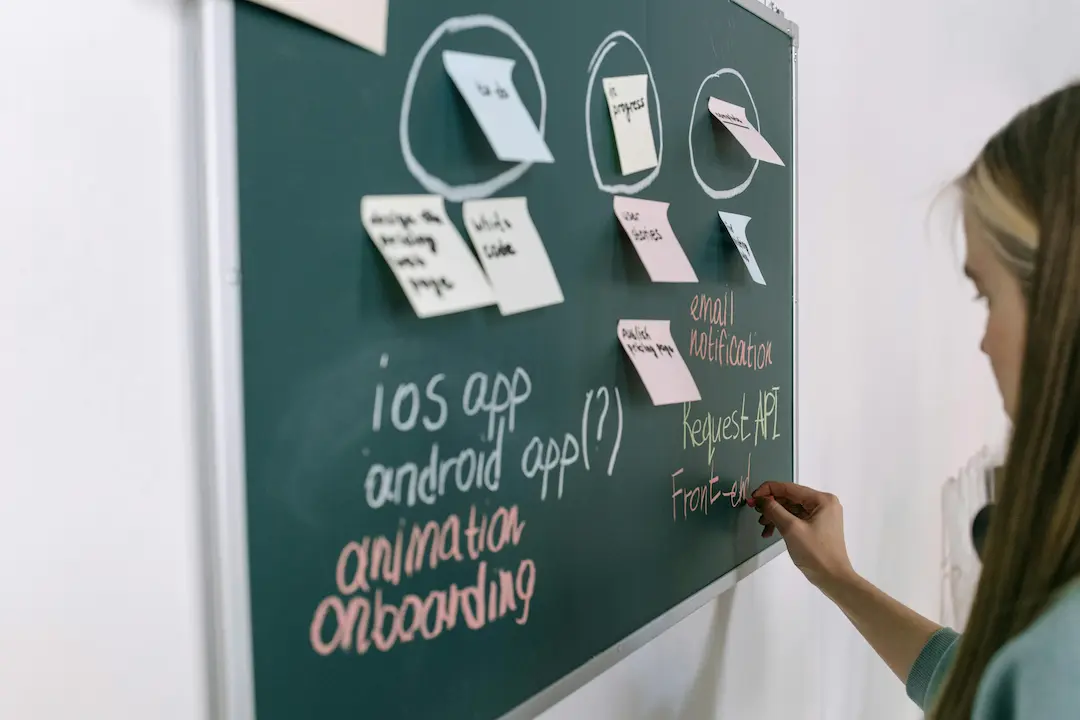 to-do
in
progress
design the
pricing
web
page
write
code
user
stories
publish
pricing page
ios app
android app(?)
animation
onboarding
email
notification
Request API
Front-end